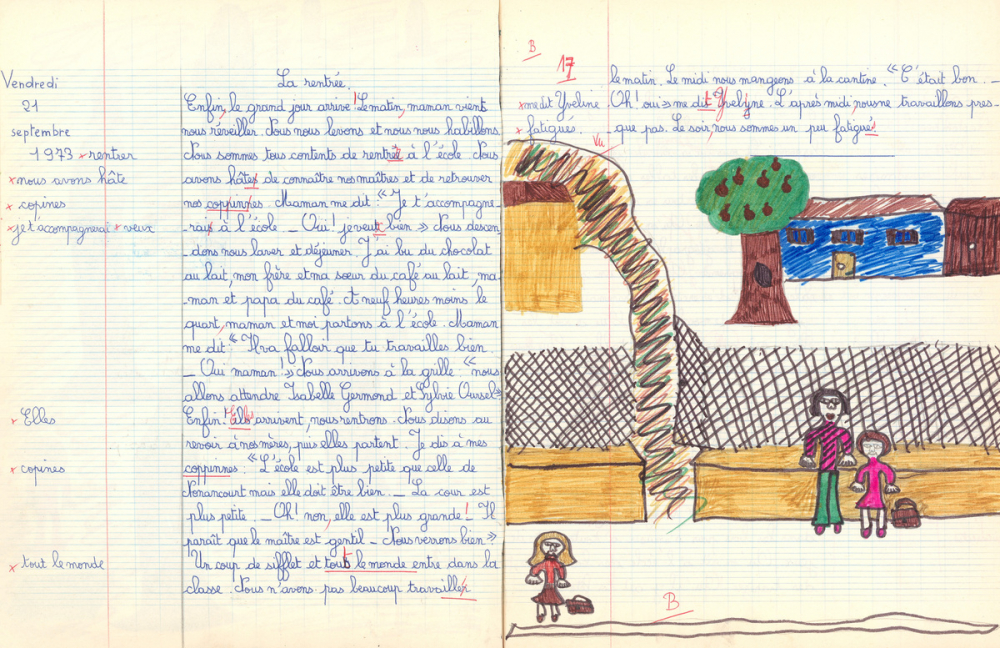 Vendredi
21
septembre
1973
× rentrer
× nous avons hâte
× copines
× je t'accompagnerai × veux
× Elles
× copines
× tout le monde
La rentrée.
Enfin, le grand jour arrive! Le matin, maman vient
nous réveiller. Nous nous levons et nous nous habillons
Nous sommes tous contents de rentrer à l'école Nous
avons hâtes de connaître nos maîtres et de retrouver
nos coppinnes. Maman me dit: "Je t'accompagne-
-rais à l'école _ Oui! je veut bien » Nous descen
-dons nous laver et déjeuner. J'ai bu du chocolat
au lait, mon frère et ma sœur du café au lait, ma
-man et papa du café. A neuf heures moins le
quart, maman et moi partons à l'école. Maman
me dit: "Il va falloir que tu travailles bien.
_ Oui maman! » Nous arrivons à la grille "nous
allons attendre Isabelle Germond et Sylvie Oursel»
Enfin! arrivent, nous rentrons. Nous disons au
revoir à nos mères, puis elles partent. Je dis à mes
coppinnes: "L'école est plus petite que celle de
Nonancourt mais elle doit être bien. _ La cour est
plus petite. _ Oh! non, elle est plus grande! _ Il
paraît que le maître est gentil _ Nous verrons bien?»
Un coup de sifflet et tout le monde entre dans la
classe. Nous n'avons pas beaucoup travailler
B
17
le matin. Le midi nous mangeons à la cantine. "C'était bon. _
× me dit Yveline. Oh! oui » me dit Yvelyne. L'après midi nous ne travaillons pres-
× fatigués. -que pas. Le soir, nous sommes un peu fatigués.
Vu
B